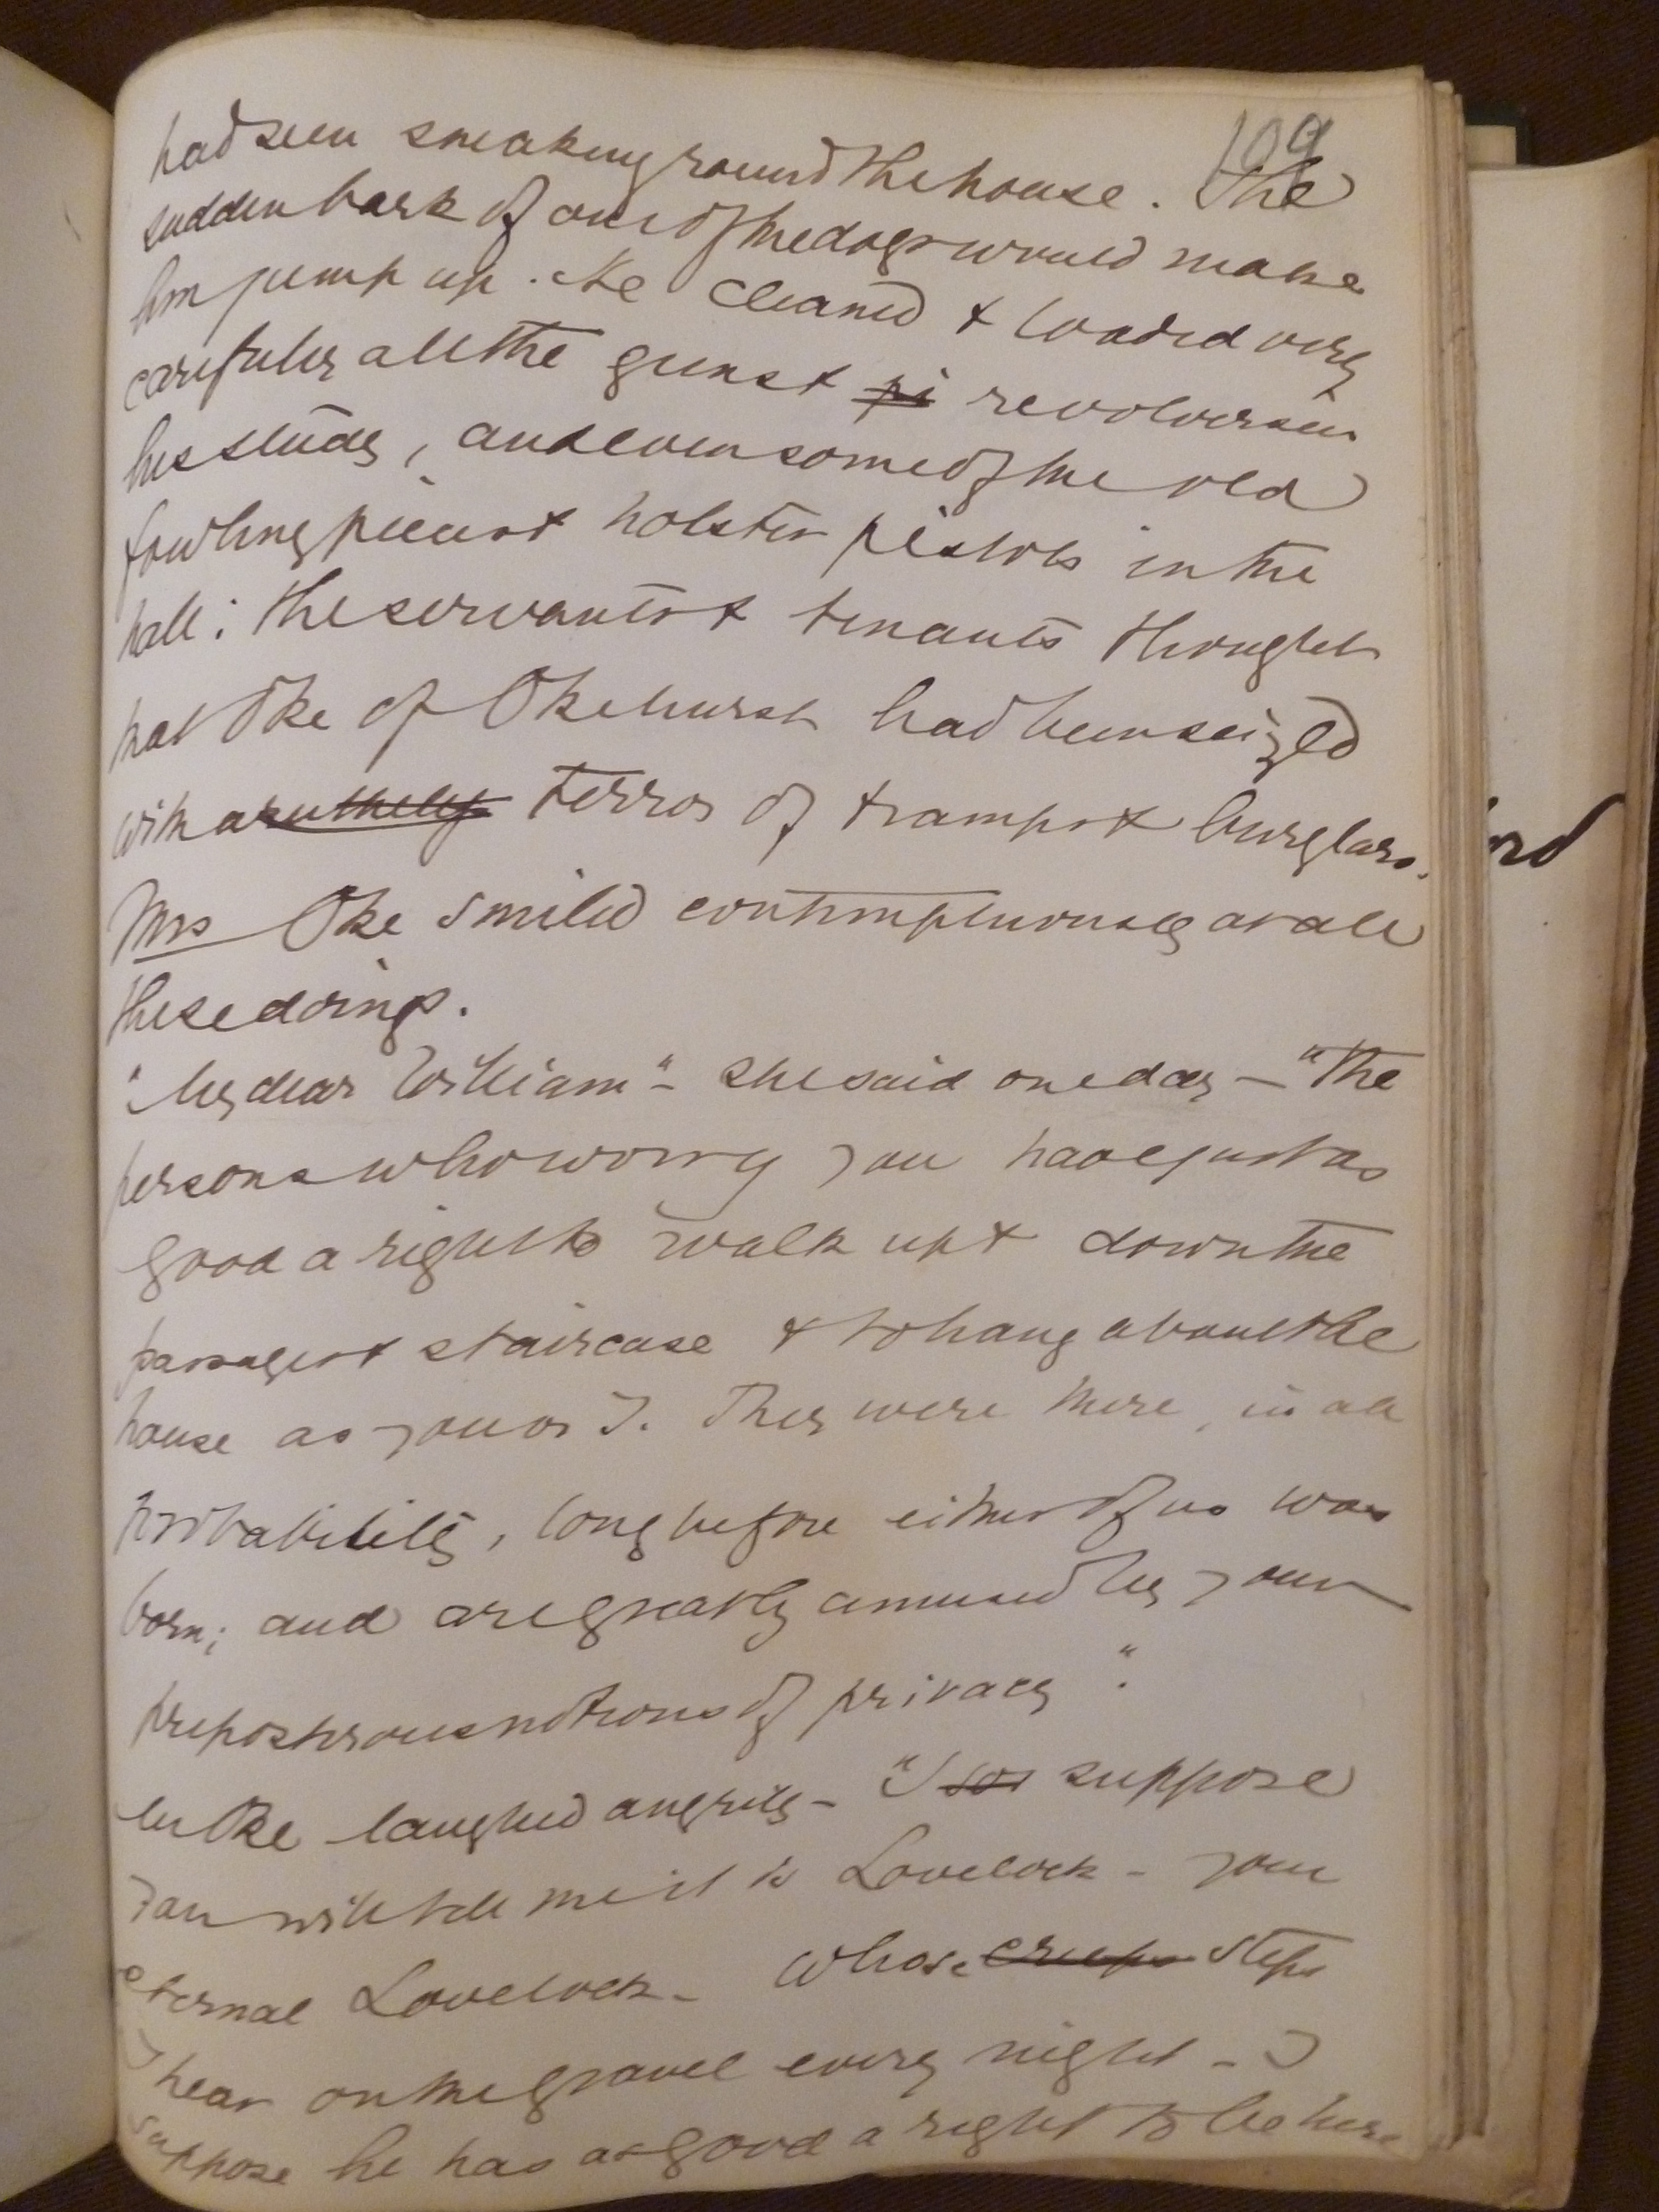 109
had seen sneaking round the house. The
sudden bark of one of the dogs would make
him jump up. He cleaned & loaded very
carefully all the guns & pi revolvers in
his study, and even some of the old
fowling pieces & holster pistols in the
hall: the servants & tenants thought
that Oke of Okehurst had been seized
with a terror of tramps & burglars.
Mrs Oke smiled contemptuously at all
these doings.
"My dear William" - she said one day - "The
persons who worry you have just as
good a right to walk up & down the
passages & staircase & to hang about the
house as you or I. They were there, in all
probability, long before either of us was
born; and are greatly amused by your
preposterous notions of privacy".
Mr Oke laughed angrily - "I suppose
you will tell me it is Lovelock - your
eternal Lovelock - whose creeps steps
I hear on the gravel every night - I
suppose he has as good a right to be here
ord